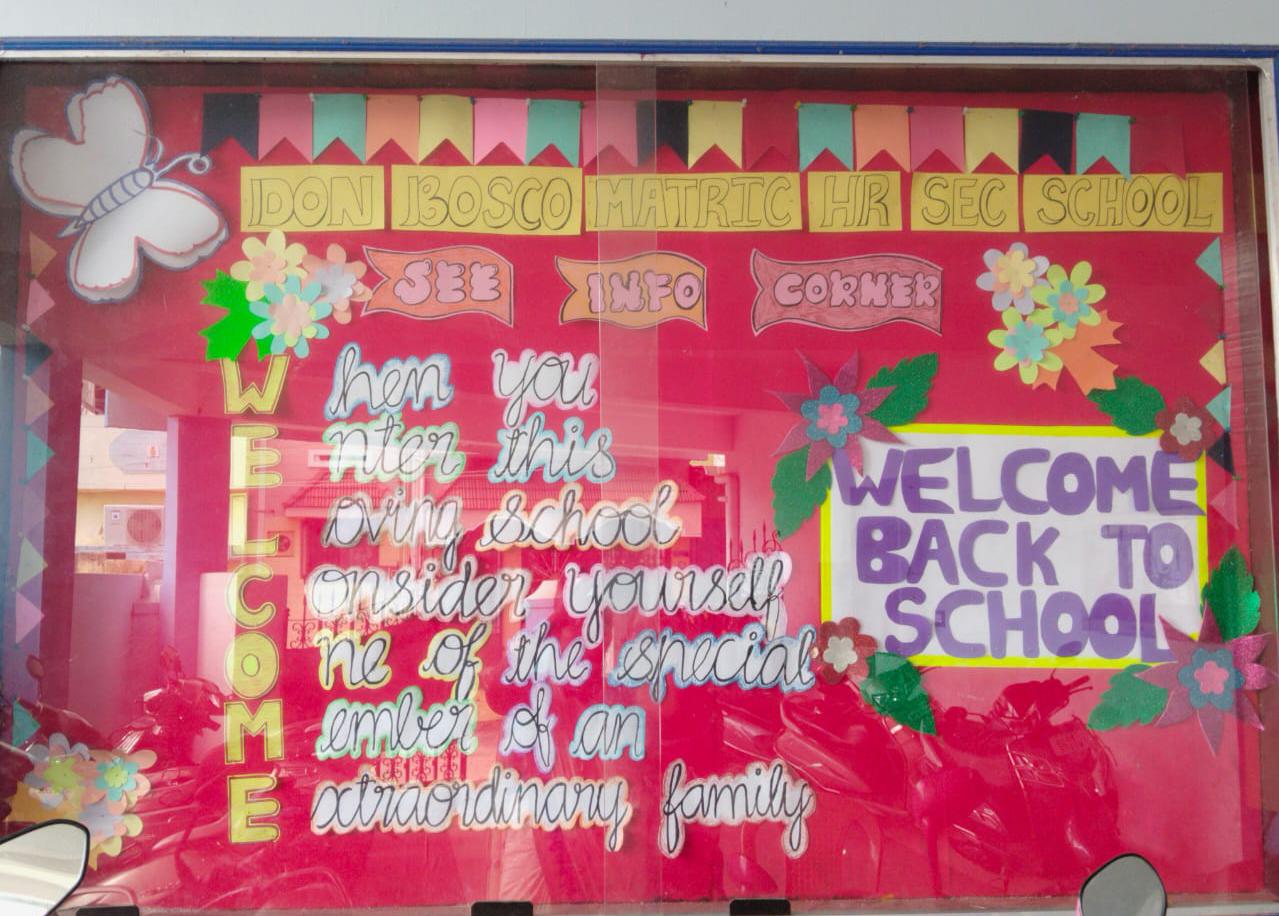 DON BOSCO MATRIC HR SEC SCHOOL
SEE INFO CORNER
When you
Enter this
Loving school
Consider yourself
One of the special
Member of an
Extraordinary family
WELCOME
BACK TO
SCHOOL